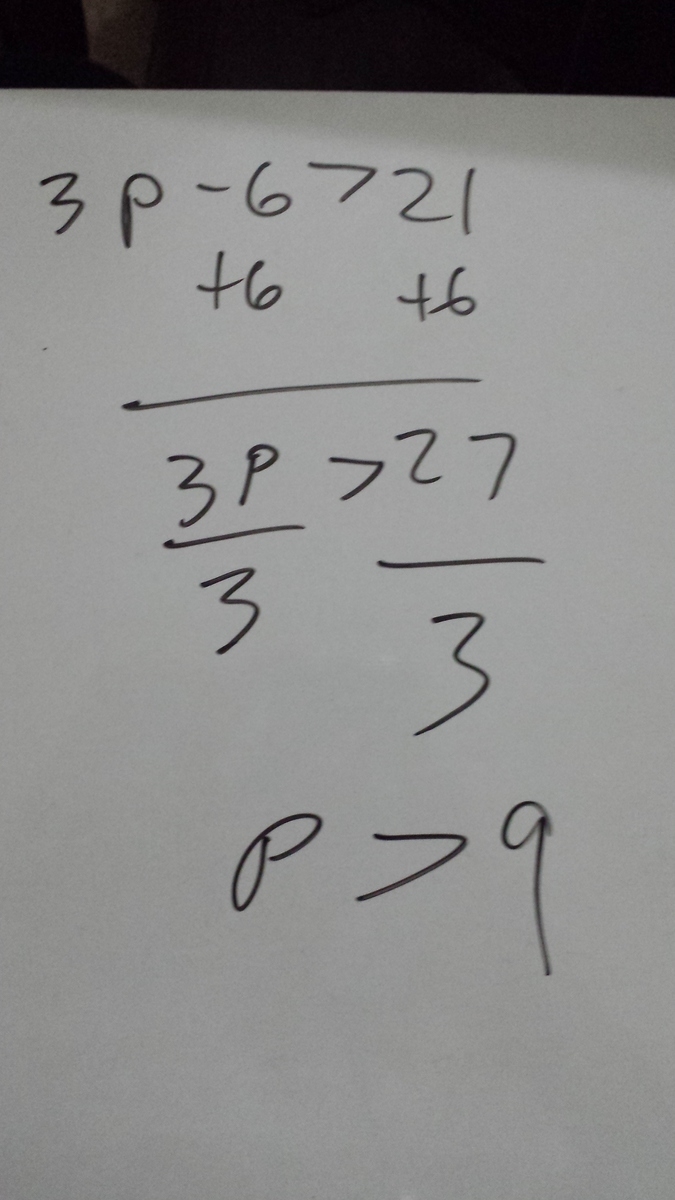 3p-6>21
+6 +6
3p>27
3 3
p>9